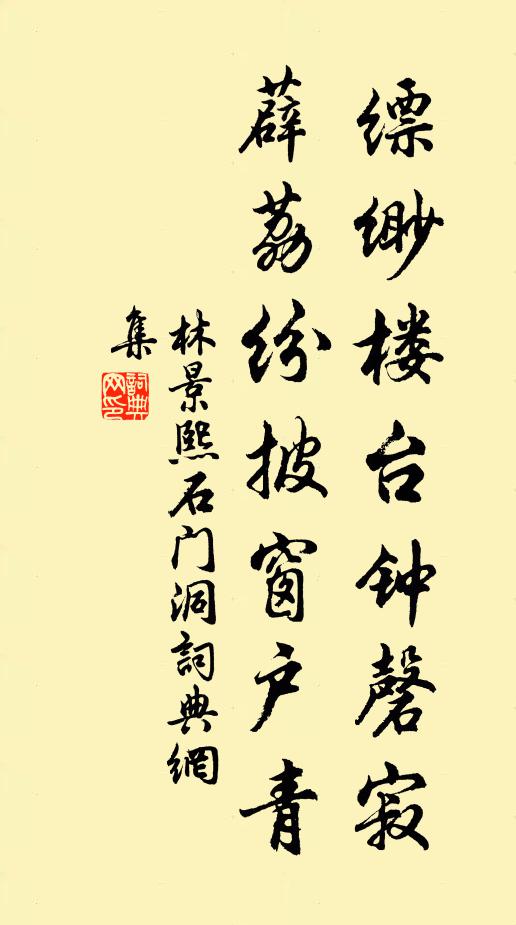 缥缈楼台钟磬寂
薜荔纷披窗户青
林景熙石门洞詞典網
集
詞典
网印